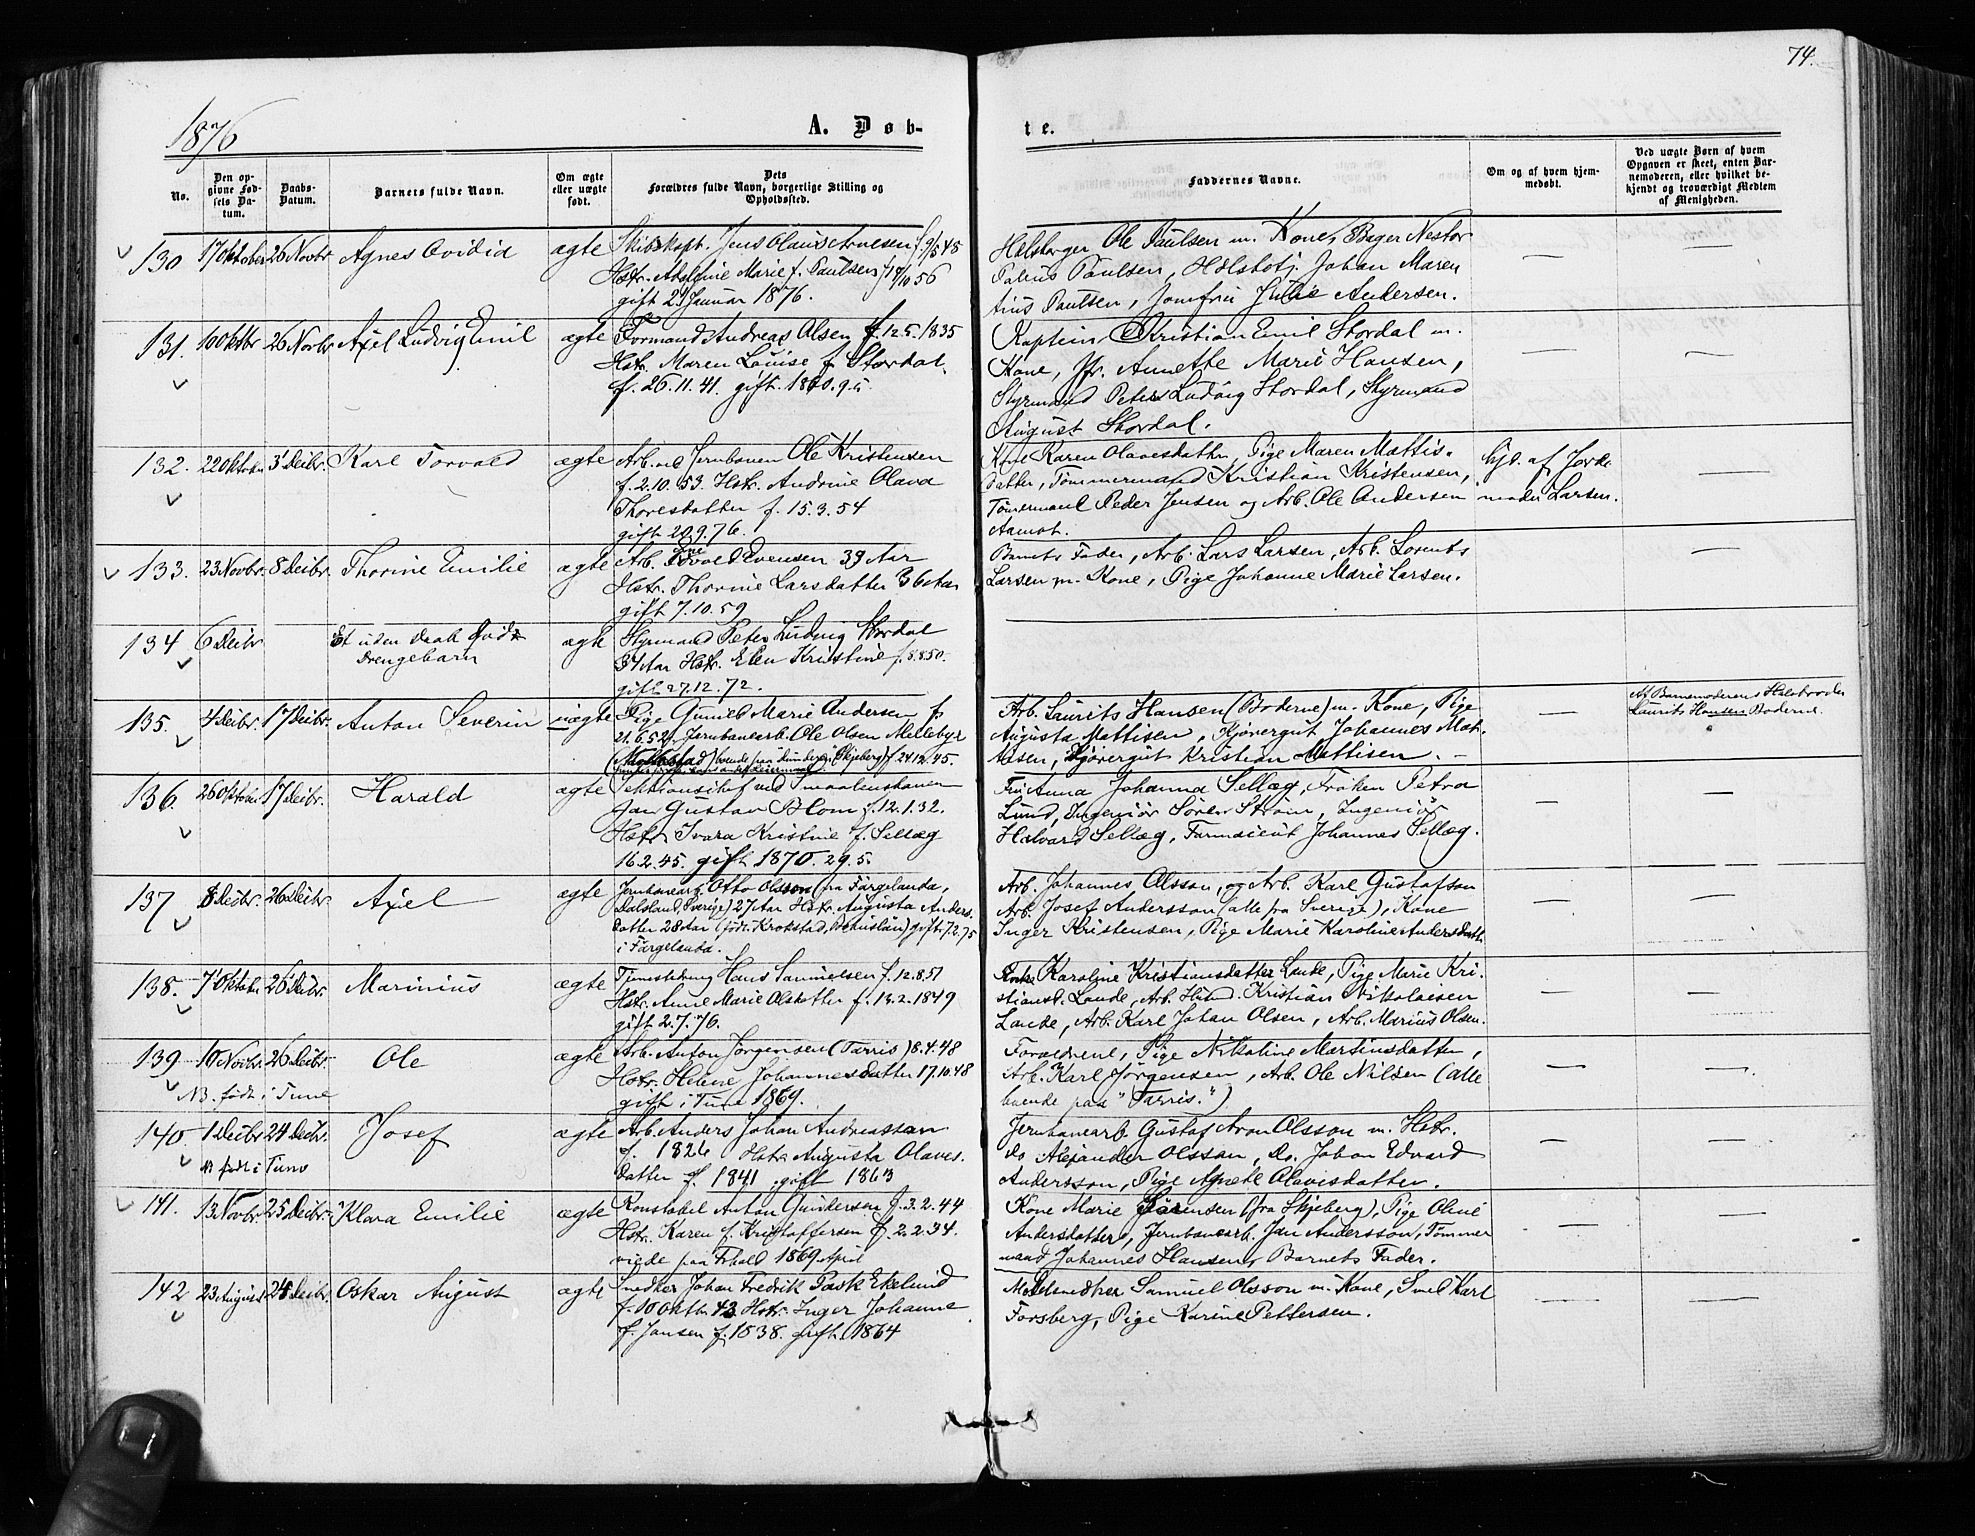 74.
1876
A. Døb-
te.
No.
Den op-
givne Fød-
sels Da-
tum.
Daabs-
Datum.
Barnets fulde Navn.
Om ægte
eller uægte
født.
Dets
Forældres fulde Navn, borgerlige Stilling og
Opholdssted.
Faddernes Navne.
Om og af hvem hjem-
medøbt.
Ved uægte Børn af hvem
Opgaven er skeet, enten Bar-
nemoderen, eller hvilket be-
kjendt og troværdigt Medlem
af Menigheden.
130 17 Oktober 26 Novbr Agnes Ovidia ægte Skibskapt. Jens Olaus Arnesen f. 9/5 48
Hstr. Adolfine Marie f. Paulsen f. 14/10 56
gift 21 Januar 1876.
Ole Paulsen m. Kone, Bager Nestor
Paulsen, Johan Maren
tius Paulsen, Jomfru Julie Andersen.
131. 10 Oktbr 26 Novbr Axel Ludvig Emil ægte Formand Andreas Olsen f. 12.5.1835
Hstr. Maren Louise f. Stordal.
f. 26.11.41. gift. 1860.9.5.
Kaptein Kristian Emil Stordal m.
Kone, Jfr. Annette Marie Hansen,
Styrmand Peter Ludvig Stordal, Styrmand
August Stordal.
132. 22 Oktober 3' Decbr. Karl Torvald ægte Arb. ved Jernbanen Ole Kristensen
f. 2.10.53. Hstr. Andrine Olava
Thoresdatter f. 15.3.54
gift 20.9.76.
Kone Karen Olavesdatter, Pige Maren Mattis-
datter, Tømmermand Kristian Kristensen,
Tømermand Peder Jensen og Arb. Ole Andersen
Aamot.
hjd. af Jorde
moder Larsen.
133. 23 Novbr. 8 Decbr. Thorine Emilie ægte Arb. Evensen 39 Aar
Hstr. Thorine Larsdatter 36 Aar
gift 7.10.59
Barnets Fader, Arb. Lars Larsen, Arb. Lorents
Larsen m. Kone, Pige Johanne Marie Larsen.
134 6 Decbr Et uden Daab
Drengebarn
ægte Styrmand Peter Ludvig Stordal
34 Aar Hstr. Elen Kristine f. 5.8.50.
gift 27.12.72.
135. 4 Decbr. 17 Decbr. Anton Severin uægte Pige Gunild Marie Andersen f.
21.6.52. Jernbanearb. Ole Olsen Mellebye
boende paa Skjeberg) f. 24.12.45.
Arb. Laurits Hansen (Boderne) m. Kone, Pige
Augusta Mattisen, Kjøregut Johannes Mat-
tisen, Kjøregut Kristian Mattisen. –
Af Barnemoderens Halvbroder
Laurits Hansen Boderne.
136. 26 Oktober 17 Decbr. Harald ægte Sektionschef ved Smaalensbanen
Jan Gustav Blom f. 12.1.32.
Hstr. Ivara Kristine f. Sellæg
16.2.45. gift 1870. 29.5.
Fru Anna Johanna Sellæg, Frøken Petra
Lund, Ingeniør Søren Strøm, Ingeniør
Halvard Sellæg, Farmaceut Johannes Sellæg.
137 8 Decbr. 26 Decbr. Axel ægte Jernbanearb. Otto Olsson (fra Färgelanda,
Dalsland, Sverige) 27 Aar Hstr. Augusta Anders-
datter 28 Aar (født Krokstad, Bohuslän) gift 7.2.75
i Färgelanda.
Arb. Johannes Olsson, og Arb. Karl Gustafson
Arb. Josef Andersson (alle fra Sverige), Kone
Inger Kristensen, Pige Marie Karoline Andersdatter
138. 7' Oktober 26' Decbr. Marinius ægte Tjenestedreng Hans Samuelsen f. 12.8.51
Hstr. Anne Marie Olsdatter f. 13.2.1849
gift 2.7.76.
Karoline Kristiansdatter Lande, Pige Marie Kri-
stiansd. Lande, Arb. Kristian Nikolaisen
Lande, Arb. Karl Johan Olsen, Arb. Marius Olsen.
139 10 Novbr. 26 Decbr. Ole ægte Arb. Anton Jørgensen (Tarris) 8.4.48
NB. født i Tune
Hstr. Helene Johannesdatter 17.10.48
gift i Tune 1869.
Forældrene, Pige Nikoline Martinsdatter,
Arb. Karl Jørgensen, Arb. Ole Nilsen (alle
boende paa "Tarris.")
140. 1 Decbr 24 Decbr. Josef ægte Arb. Anders Johan Andreassan
NB født i Tune
f. 1826 Hstr. Augusta Olaves-
datter f. 1841 gift 1863
Jernbanearb. Gustaf Aron Olsson m. Hstr.
do Alexander Olsson, Do. Johan Edvard
Andersson, Pige Agnete Olavesdatter.
141. 13 Novbr. 25 Decbr. Klara Emilie ægte Konstabel Anton Gundersen f. 3.2.44
Hstr. Karen f. Kristoffersen f. 2.2.34.
viede paa Frhald 1869 April
Kone Marie Sørensen (fra Skjeberg), Pige Oline
Andersdatter, Jernbanearb. Jan Andersson, Tømmer
mand Johannes Hansen, Barnets Fader.
142 23 August 28 Decbr. Oskar August ægte Snedker Johan Fredrik Pask Ekelund
f. 10 Oktbr. 43. Hstr. Inger Johanne
f. Jansen f. 1838. gift. 1864
Modelsnedker Samuel Olsson m. Kone, Smed Karl
Forsberg, Pige Karine Pettersen.